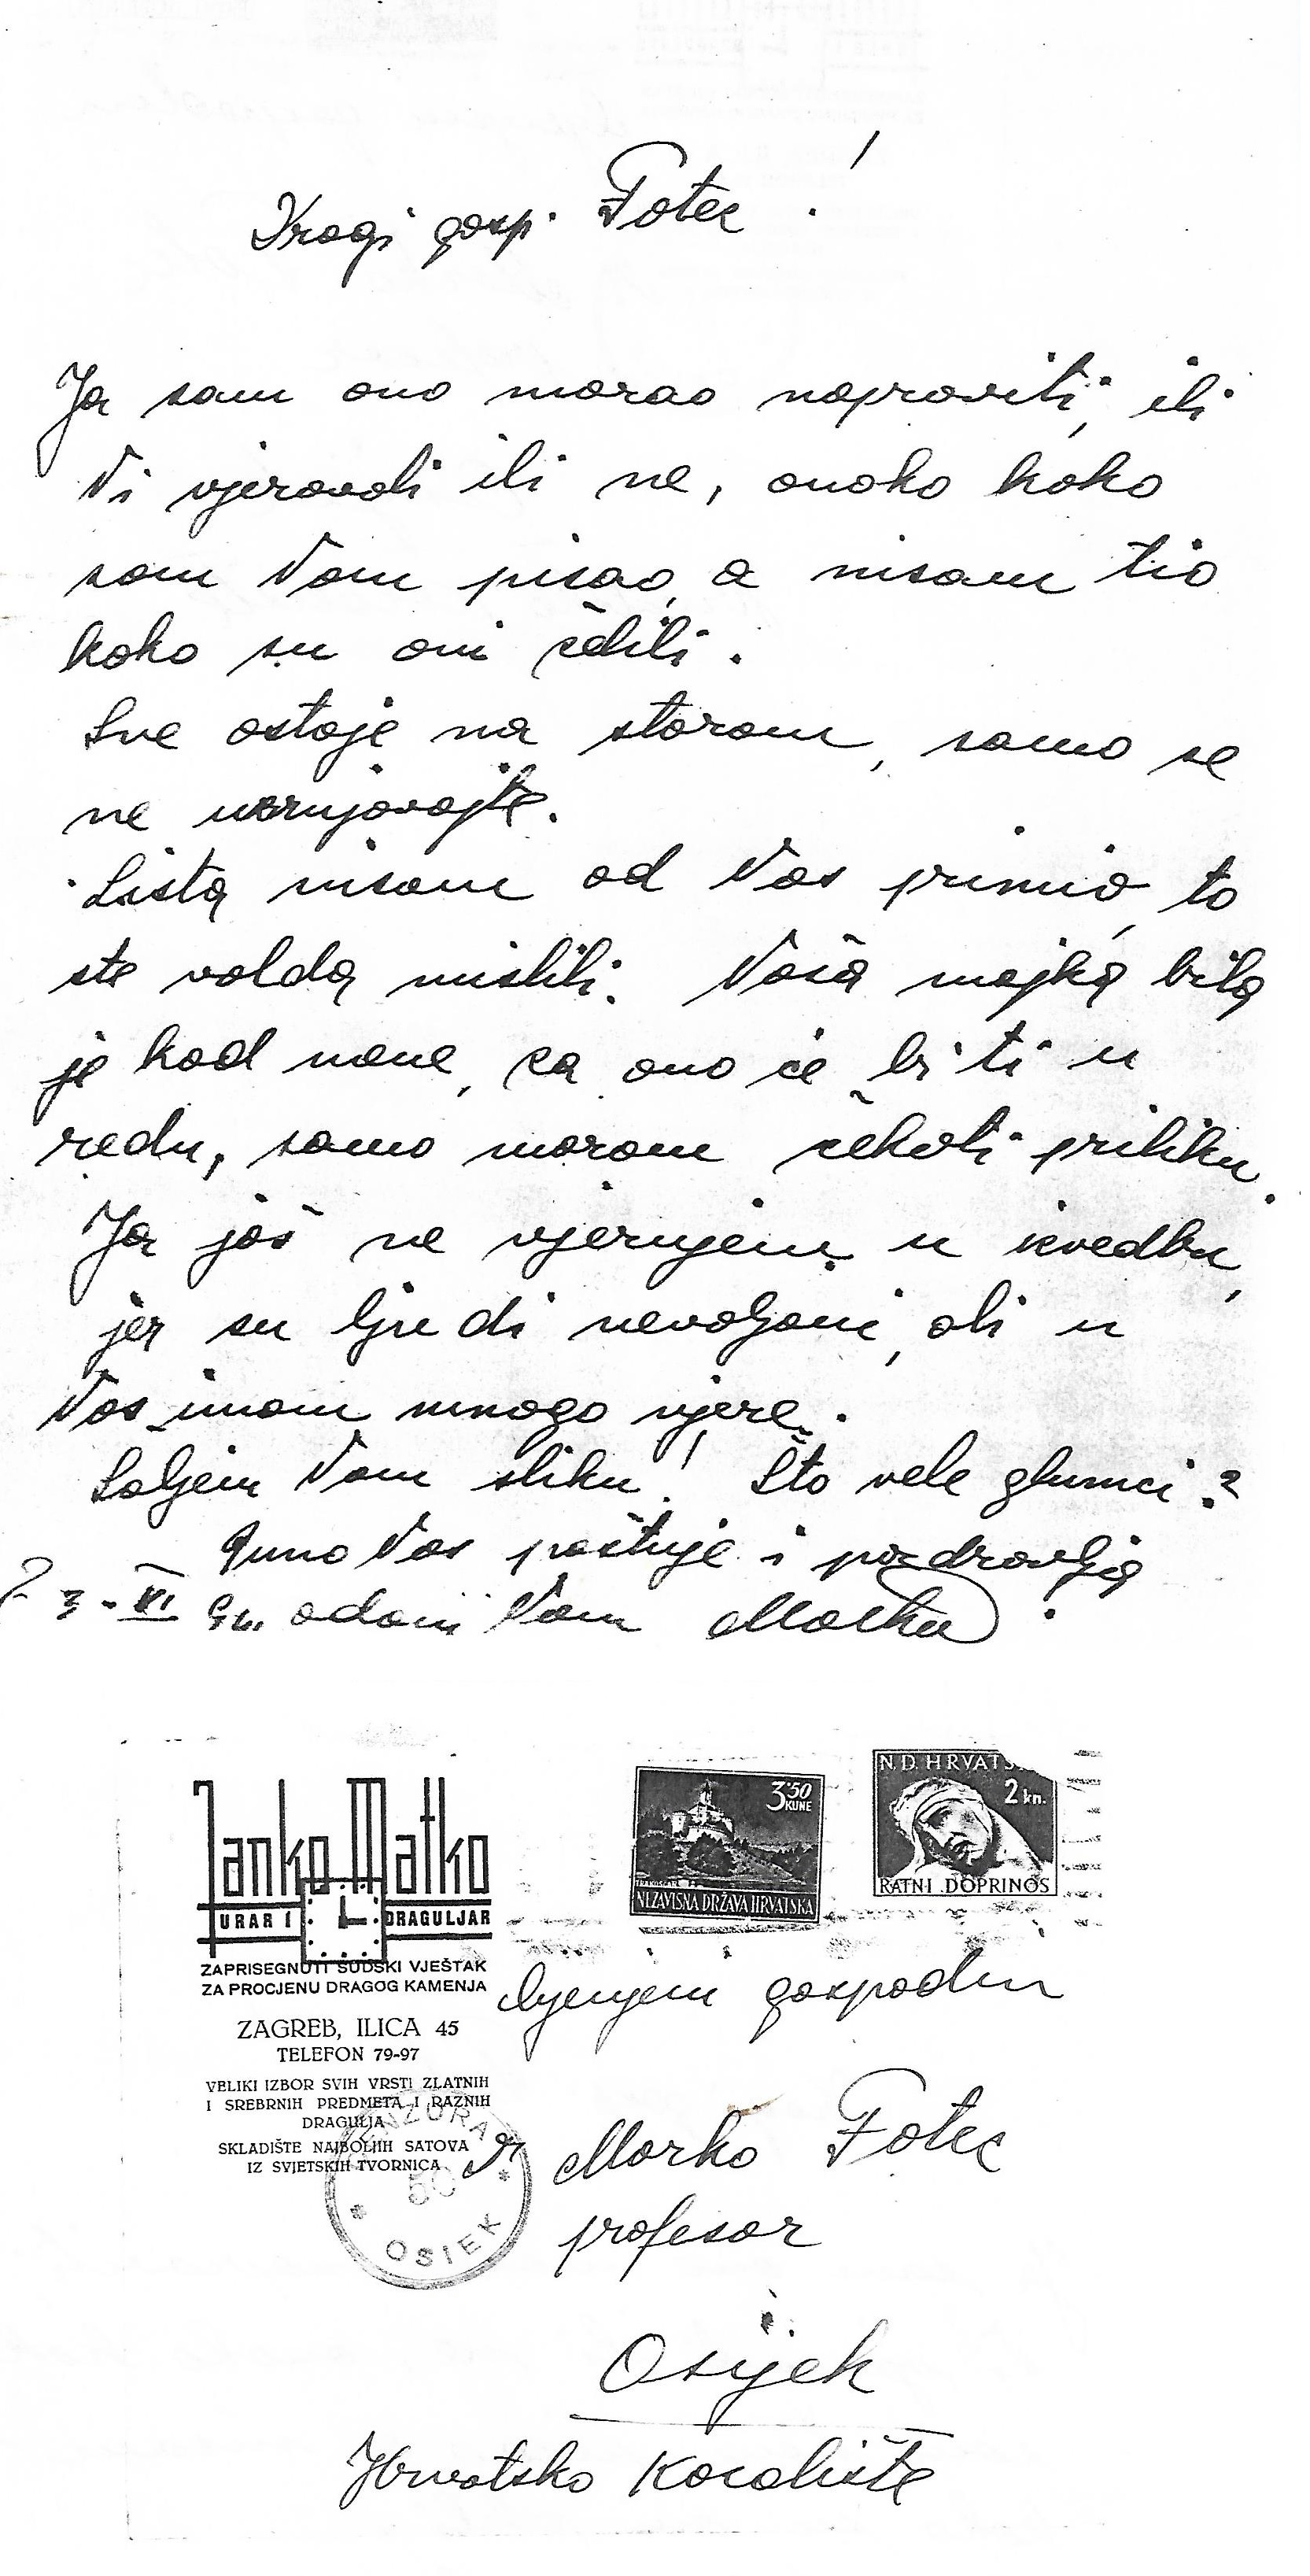 Dragi gosp. Fotez!
Ja sam ono morao napraviti, ili
Vi vjerovali ili ne, onako kako
sam Vam pisao, a nisam tio
kako su oni želili.
Sve ostaje na starom, samo se
ne uzrujavajte.
Lista nisam od Vas primio, to
ste valda mislili. Vaša majka bila
je kod mene, za ono će biti u
redu, samo moram čekati priliku.
Ja još ne vjerujem u izvedbu,
jer su ljudi nevaljani, ali u
Vas imam mnogo vjere.
Šaljem Vam sliku! Što vele glumci?
Puno Vas poštuje i pozdravlja
Z 3-VI 944. odani Vam Matko.
Janko Matko
URAR I DRAGULJAR
ZAPRISEGNUTI SUDSKI VJEŠTAK
ZA PROCJENU DRAGOG KAMENJA
ZAGREB, ILICA 45
TELEFON 79-97
VELIKI IZBOR SVIH VRSTI ZLATNIH
I SREBRNIH PREDMETA I RAZNIH
DRAGULJA
SKLADIŠTE NAJBOLJIH SATOVA
IZ SVJETSKIH TVORNICA
3·50
KUNE
NEZAVISNA DRŽAVA HRVATSKA
N. D. HRVATS
2 kn.
RATNI DOPRINOS
Cijenjeni gospodin
Dr Marko Fotez
profesor
Osijek
Hrvatsko Kazalište
CENZURA
50
OSIEK